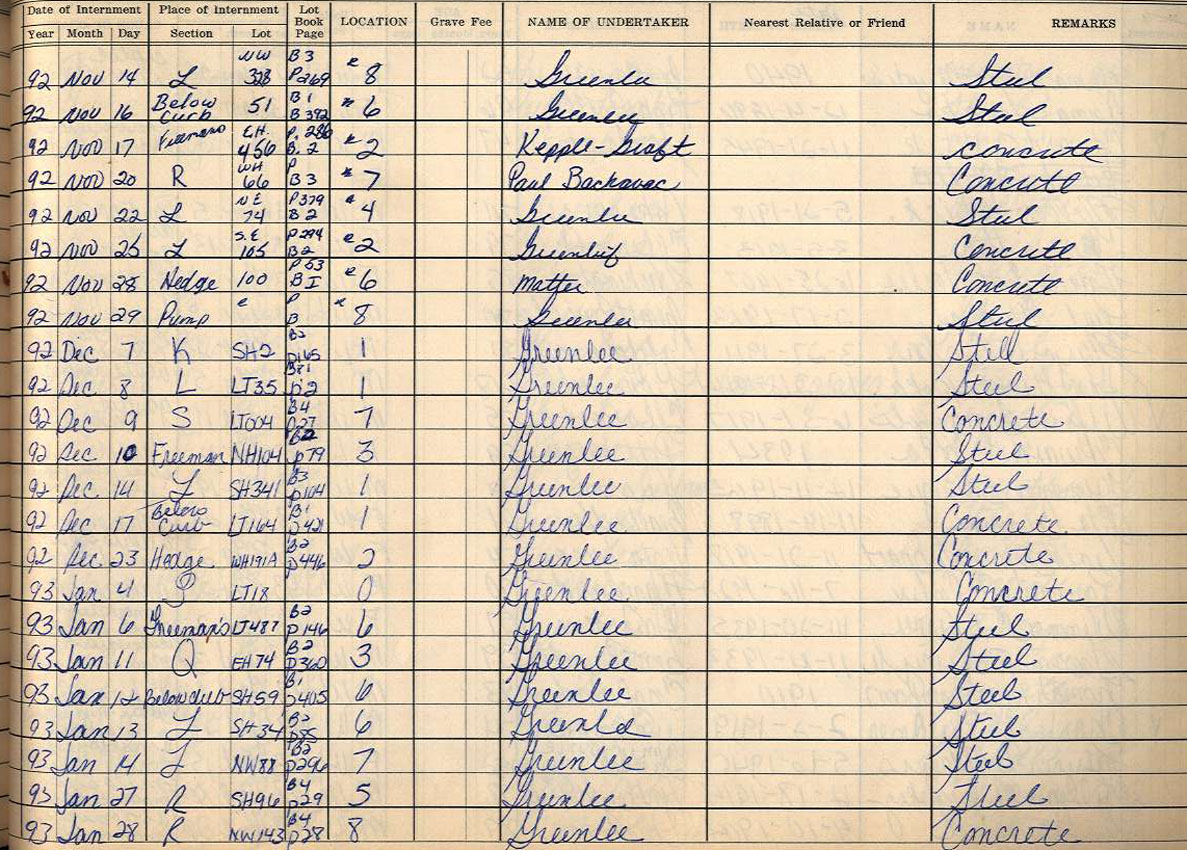 Date of Internment Place of Internment Lot Book Page LOCATION Grave Fee NAME OF UNDERTAKER Nearest Relative or Friend REMARKS
Year Month Day Section Lot
92 Nov 14 L NW 328 B 3 P269 8 Greenlee Steel
92 Nov 16 Below Curb 51 B 1 B 392 6 Greenlee Steel
92 Nov 17 E.H. 456 P. 286 B. 2 2 Kepple-Graft concrete
92 Nov 20 R WH 66 P B 3 7 Paul Concrete
92 Nov 22 L NE 74 P379 B 2 4 Greenlee Steel
92 Nov 25 L S.E 105 P294 B 2 2 Concrete
92 Nov 28 Hedge 100 P 53 B I e 6 Concrete
92 Nov 29 Pump e P B 8 Greenlee Steel
92 Dec 7 K SH2 B2 P165 1 Greenlee Stell
92 Dec 8 L LT35 P2 1 Greenlee Steel
92 Dec 9 S LT504 B4 P27 7 Greenlee Concrete
92 Dec 10 Freeman NH104 B2 P79 3 Greenlee Steel
92 Dec. 14 L SH341 B3 P104 1 Greenlee Steel
92 Dec 17 Below Curb LT164 B1 P421 1 Greenlee Concrete
92 Dec 23 Hedge WH191A B2 P446 2 Greenlee Concrete
93 Jan 4 P LT18 0 Greenlee Concrete
93 Jan 6 Freeman's LT487 B2 P146 6 Greenlee Steel
93 Jan 11 Q EH74 B2 P360 3 Greenlee Steel
93 Jan 12 Below curb SH59 B1 P405 6 Greenlee Steel
93 Jan 13 L SH34 B2 P85 6 Greenlee Steel
93 Jan 14 L NW88 B2 P296 7 Greenlee Steel
93 Jan 27 R SH96 B4 P29 5 Greenlee Steel
93 Jan 28 R NW143 B4 P28 8 Greenlee Concrete